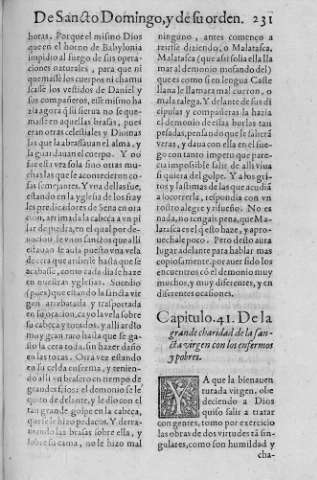 De Sancto Domingo, y de su orden. 231
horas. Porque el mismo Dios
que en el horno de Babylonia
impidio al fuego de sus opera-
ciones naturales, para que ni
quemasse los cuerpos ni chamu
scasse los vestidos de Daniel y
sus compañeros, esse mismo ha
zia agora q̃ su sierua no se que-
masse en aquellas brasas, pues
eran otras celestiales y Diuinas
las que la abrasauan el alma, y
la guardauan el cuerpo. Y no
fue esta vez sola sino otras mu-
chas las que le acontecieron co-
sas semejantes. Y vna dellas fue,
estando en la yglesia de los fray
les predicadores de Sena en ora
cion, arrimada la cabeça a vn pi
lar de piedra, en el qual por de-
uocion de vnos sanctos que alli
estauan se auia puesto vna vela
de cera que ardiesse hasta que se
acabasse, como cada dia se haze
en nuestras yglesias. Sucedio
(pues) que estando la sancta vir
gen arrebatada y trasportada
en su oracion, cayo la vela sobre
su cabeça y tocados, y alli ardio
muy gran rato hasta que se ga-
sto la cera toda, sin hazer daño
en las tocas. Otra vez estando
en su celda enferma, y tenien-
do alli vn brasero en tiempo de
grandes frios: el demonio se le
quito de delante, y le dio con el
tan grande golpe en la cabeça,
que le hizo pedaços. Y derra-
mando las brasas sobre ella, y
sobre su cama, no le hizo mal
ninguno, antes començo a
reirse diziendo, o Malatasca.
Malatasca (que assi solia ella lla
mar al demonio mosando del)
que es como si en lengua Caste
llana le llamara mal curron, o
mala talega. Y delante de sus di
cipulas y compañeras la hazia
el demonio destas burlas tan
pesadas, pensando que se saliera
veras, y daua con ella en el fue-
go con tanto impetu que pare-
cia impossible salir de alli viua
si quiera del golpe. Y a los gri-
tos y lastimas de las que acudiã
a socorrerla, respondia con vn
rostro alegre y risueño. No es
nada, no tengais pena, que Ma-
latasca es el q̃ esto haze, y apro-
uechale poco. Pero desto aura
lugar adelante para hablar mas
copiosamente, por auer sido los
encuentros cõ el demonio muy
muchos, y muy diferentes, y en
diferentes ocasiones.
Capitulo. 41. De la
grande charidad de la san-
cta virgen con los enfermos
y pobres.
YA que la bienauen
turada virgen, obe
deciendo a Dios
quiso salir a tratar
con gentes, tomo por exercicio
las obras de dos virtudes tã sin-
gulares, como son humildad y
cha-